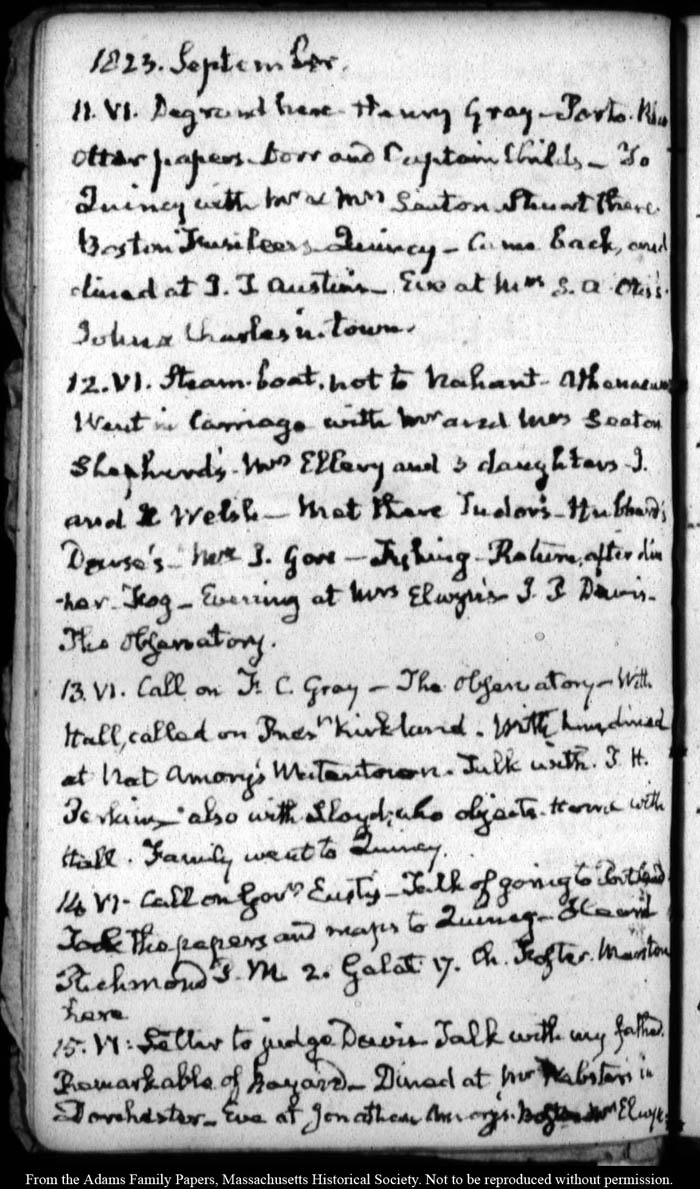 1823. September.
11. VI. Degrand here. Henry Gray — Porto.
Otter papers. Dorr and Captain Childs — To
Quincy with Mr & Mrs Seaton. Stuart there.
Boston Fusileers. Quincy — Came back, and
dined at J. T. Austin's — Eve at Mrs S. A. Otis's.
John & Charles in town.
12. VI. Steam-boat, not to Nahant — Athenaeum
Went in Carriage with Mr and Mrs Seaton
Shepherd's. Mrs Ellery and 3 daughters. J.
and Welsh — Met there Tudor's — Hubbard's
Dowse's — J. Gore — Fishing — Return, after din
-ner. Fog — Evening at Mrs Elwyn's. J. P. Davis.
The Observatory.
13. VI. Call on F. C. Gray — The Observatory — With
Hall, called on Presn Kirkland. With him, dined
at Nat Amory's Watertown. Talk with T. H.
Perkins, also with Lloyd; who objects. Home with
Hall. Family went to Quincy.
14. VI. Call on Govr Eustis — Talk of going to Portland
Took the papers and maps to Quincy — Heard
Richmond P. M. 2. Galat. 17. Ch. Foster. Marston
here
15. VI: Letter to judge Davis. Talk with my father.
Remarkable of Bayard — Dined at Mr Webster's in
Dorchester — Eve at Jonathan Amory's. Mrs Elwyn
From the Adams Family Papers, Massachusetts Historical Society. Not to be reproduced without permission.